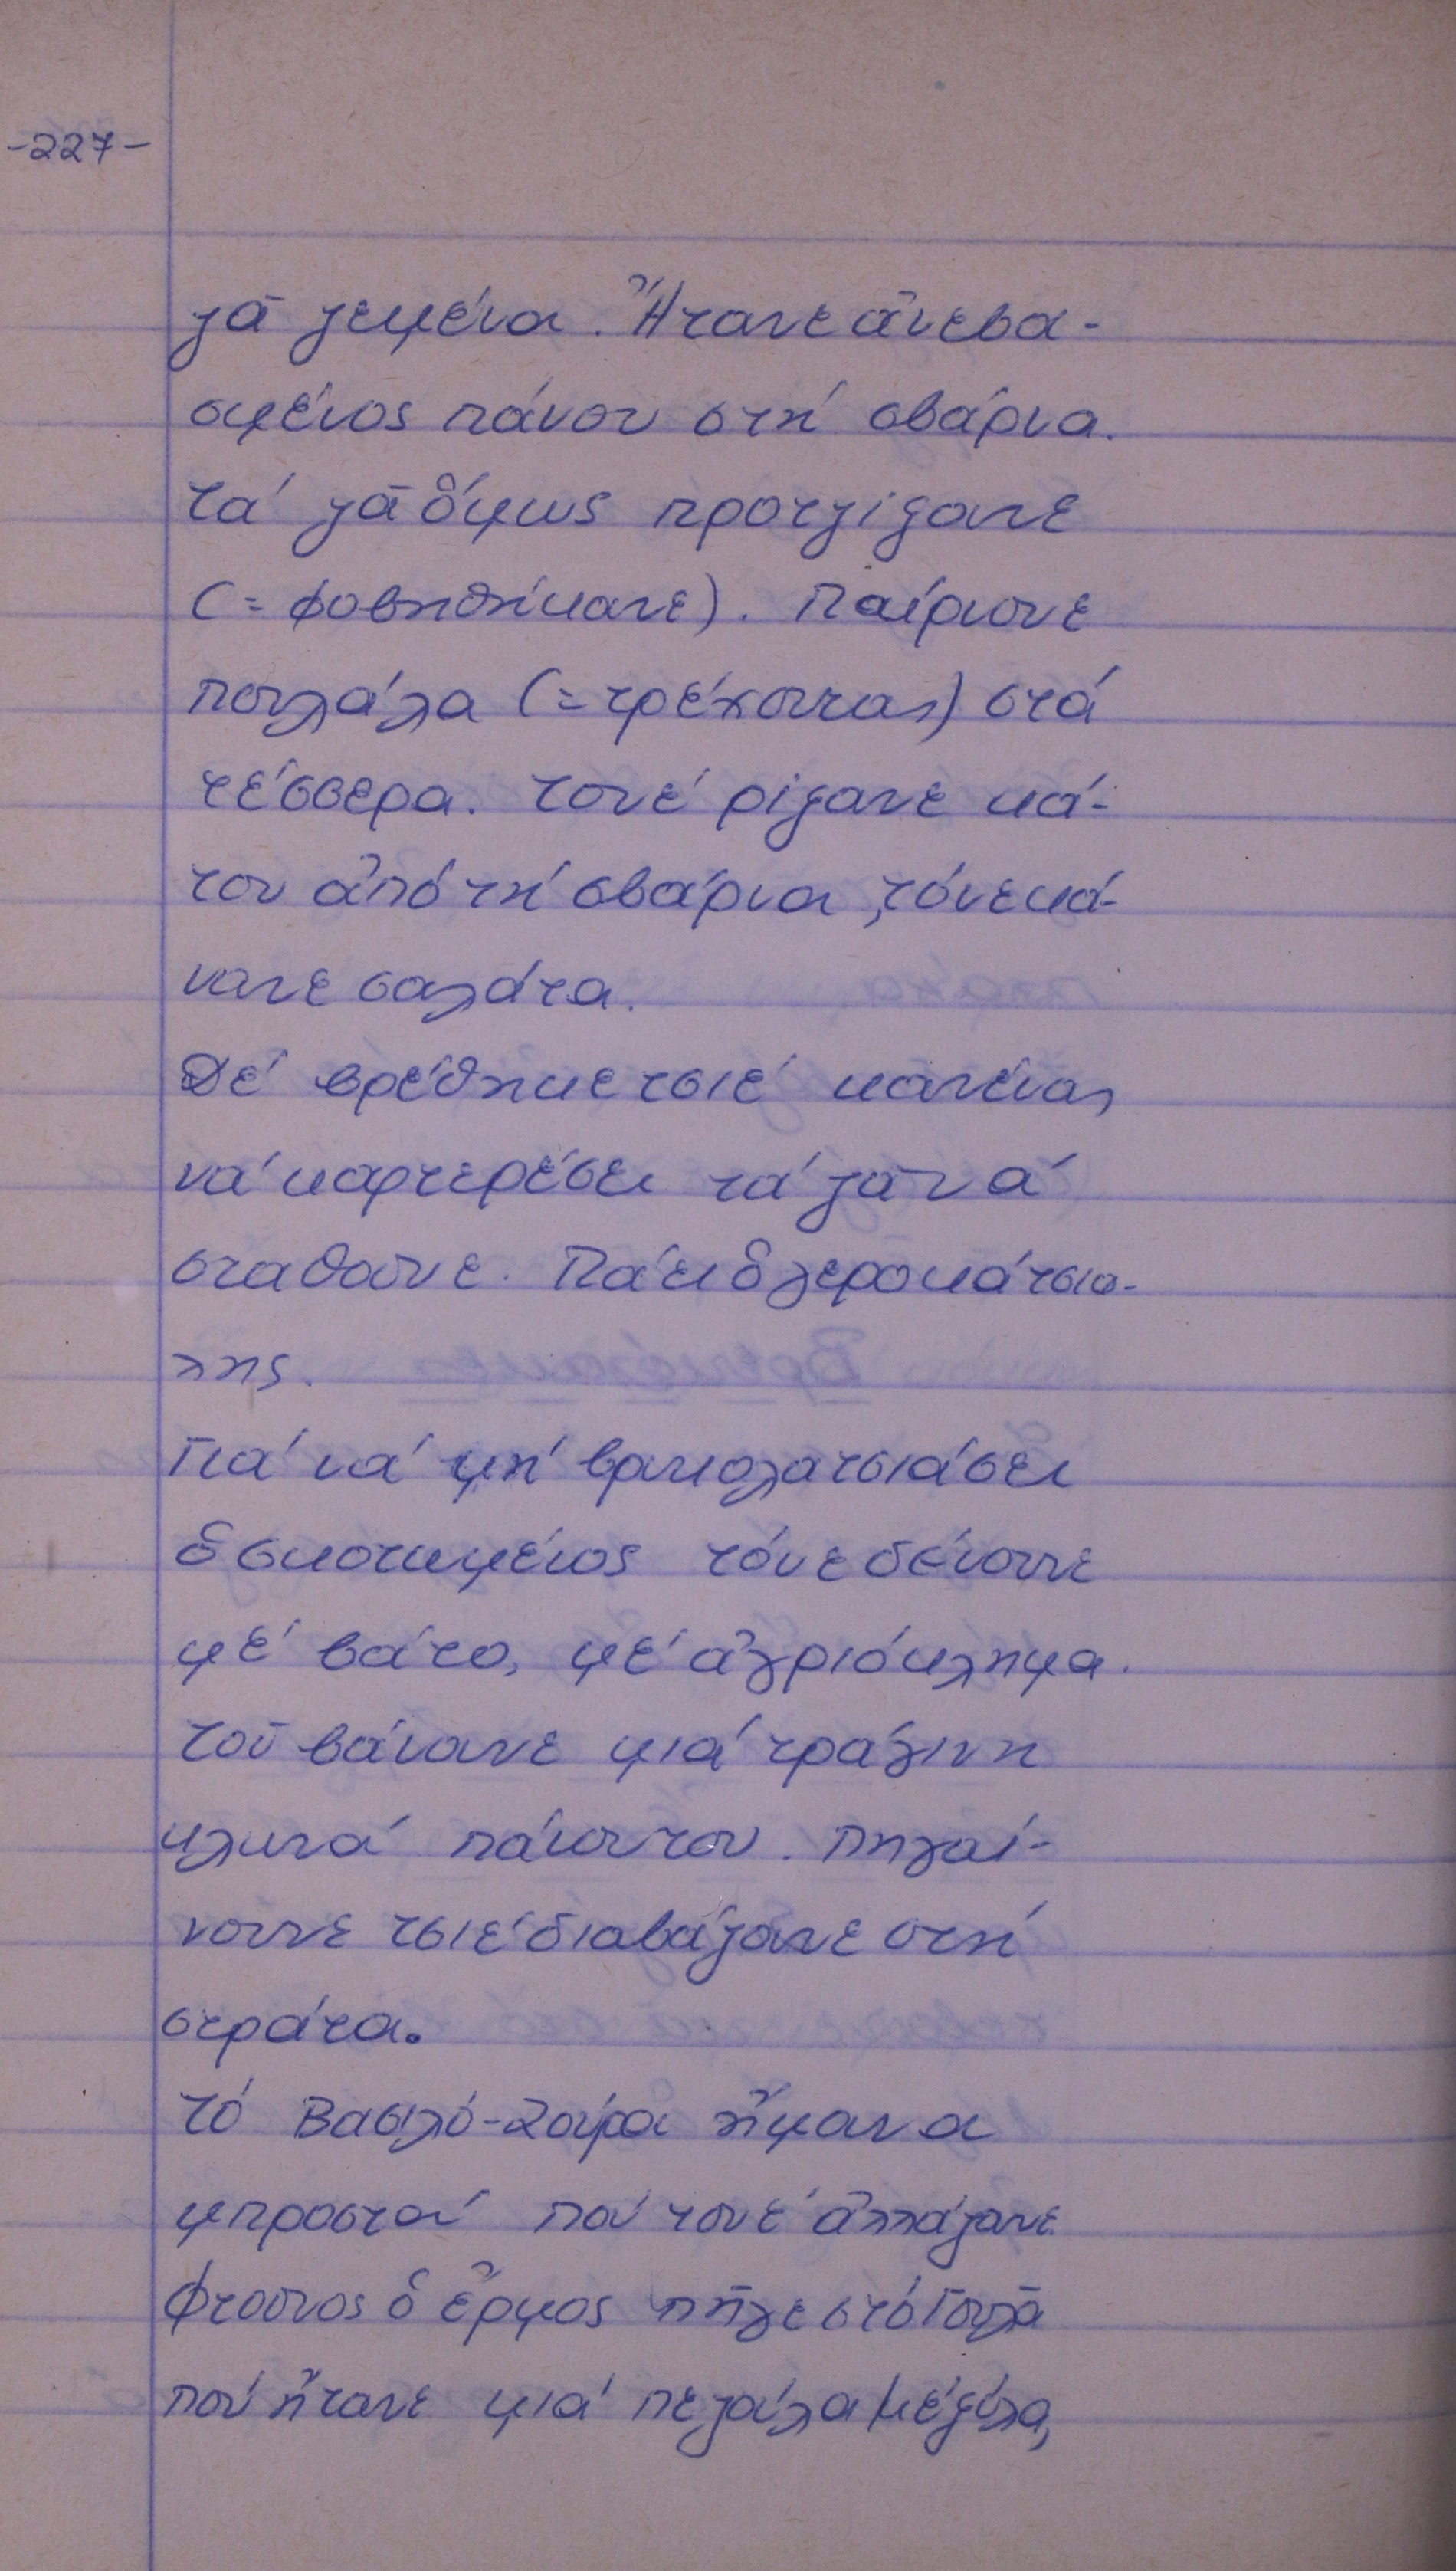 -227-
ζᾶ ζεμένα. Ἤτανε ἀνεβα-
σμένος πάνου στή σβάρνα.
Τά ζᾶ ὅμως προγγίξανε
(= φοβηθήκανε). Παίρνουνε
πουλάλα (=τρέχοντας) στά
τέσσερα. Τονέ ρίξανε κά-
του ἀπό τή σβάρνα, τόνε κά-
νανε σαλάτα.
Δέ βρέθηκε τσιέ κανένας
νά καρτερέσει τά ζᾶ νά
σταθοῦνε. Πάει ὁ γεροκάτσια-
λης.
Γιά νά μή βρυκολατσιάσει
ὁ σκοτωμένος τόνε δένουνε
μέ βάτο, μέ ἀγριόκλημα.
Τοῦ βάνανε μιά τράγινη
κλωνά πάνου του. Πηγαί-
νουνε τσιέ διαβάζανε στή
στράτα.
Τό Βασιλό-Σούρα ἤμανα
μπροστά πού τονέ ἀλλάζανε
Φτοῦνος ὁ ἔρμος πῆγε στό Γουλᾶ
πού ἤτανε μιά πεζούλα μέ ξύλα,